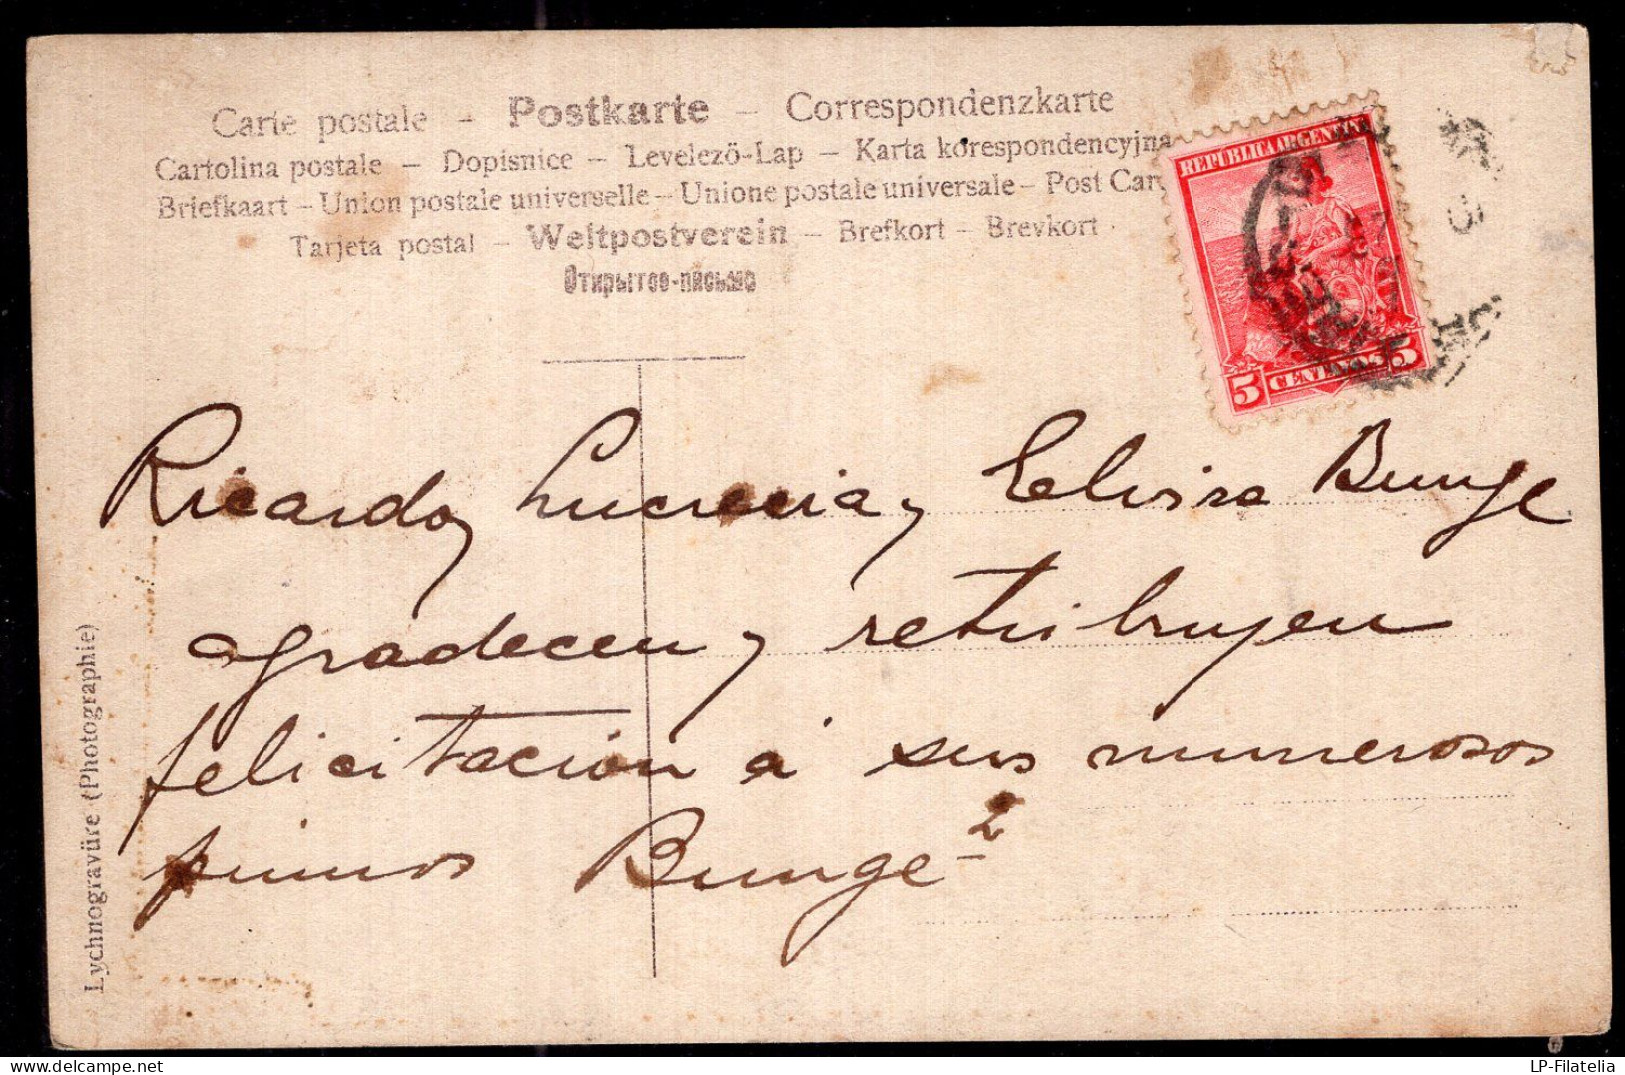 Carte postale – Postkarte – Correspondenzkarte
Cartolina postale – Dopisnice – Levelező-Lap – Karta korespondencyjna
Briefkaart – Union postale universelle – Unione postale universale – Post Car
Tarjeta postal – Weltpostverein – Brefkort – Brevkort
Открытое-письмо
REPÚBLICA ARGENTINA
5 CENTAVOS 5
Ricardo, Lucrecia, Elvira Bunge
agradecen, retribuyen
felicitacion á sus numerosos
primos Bunge
Lychnogravüre (Photographie)
LP-Filatelia